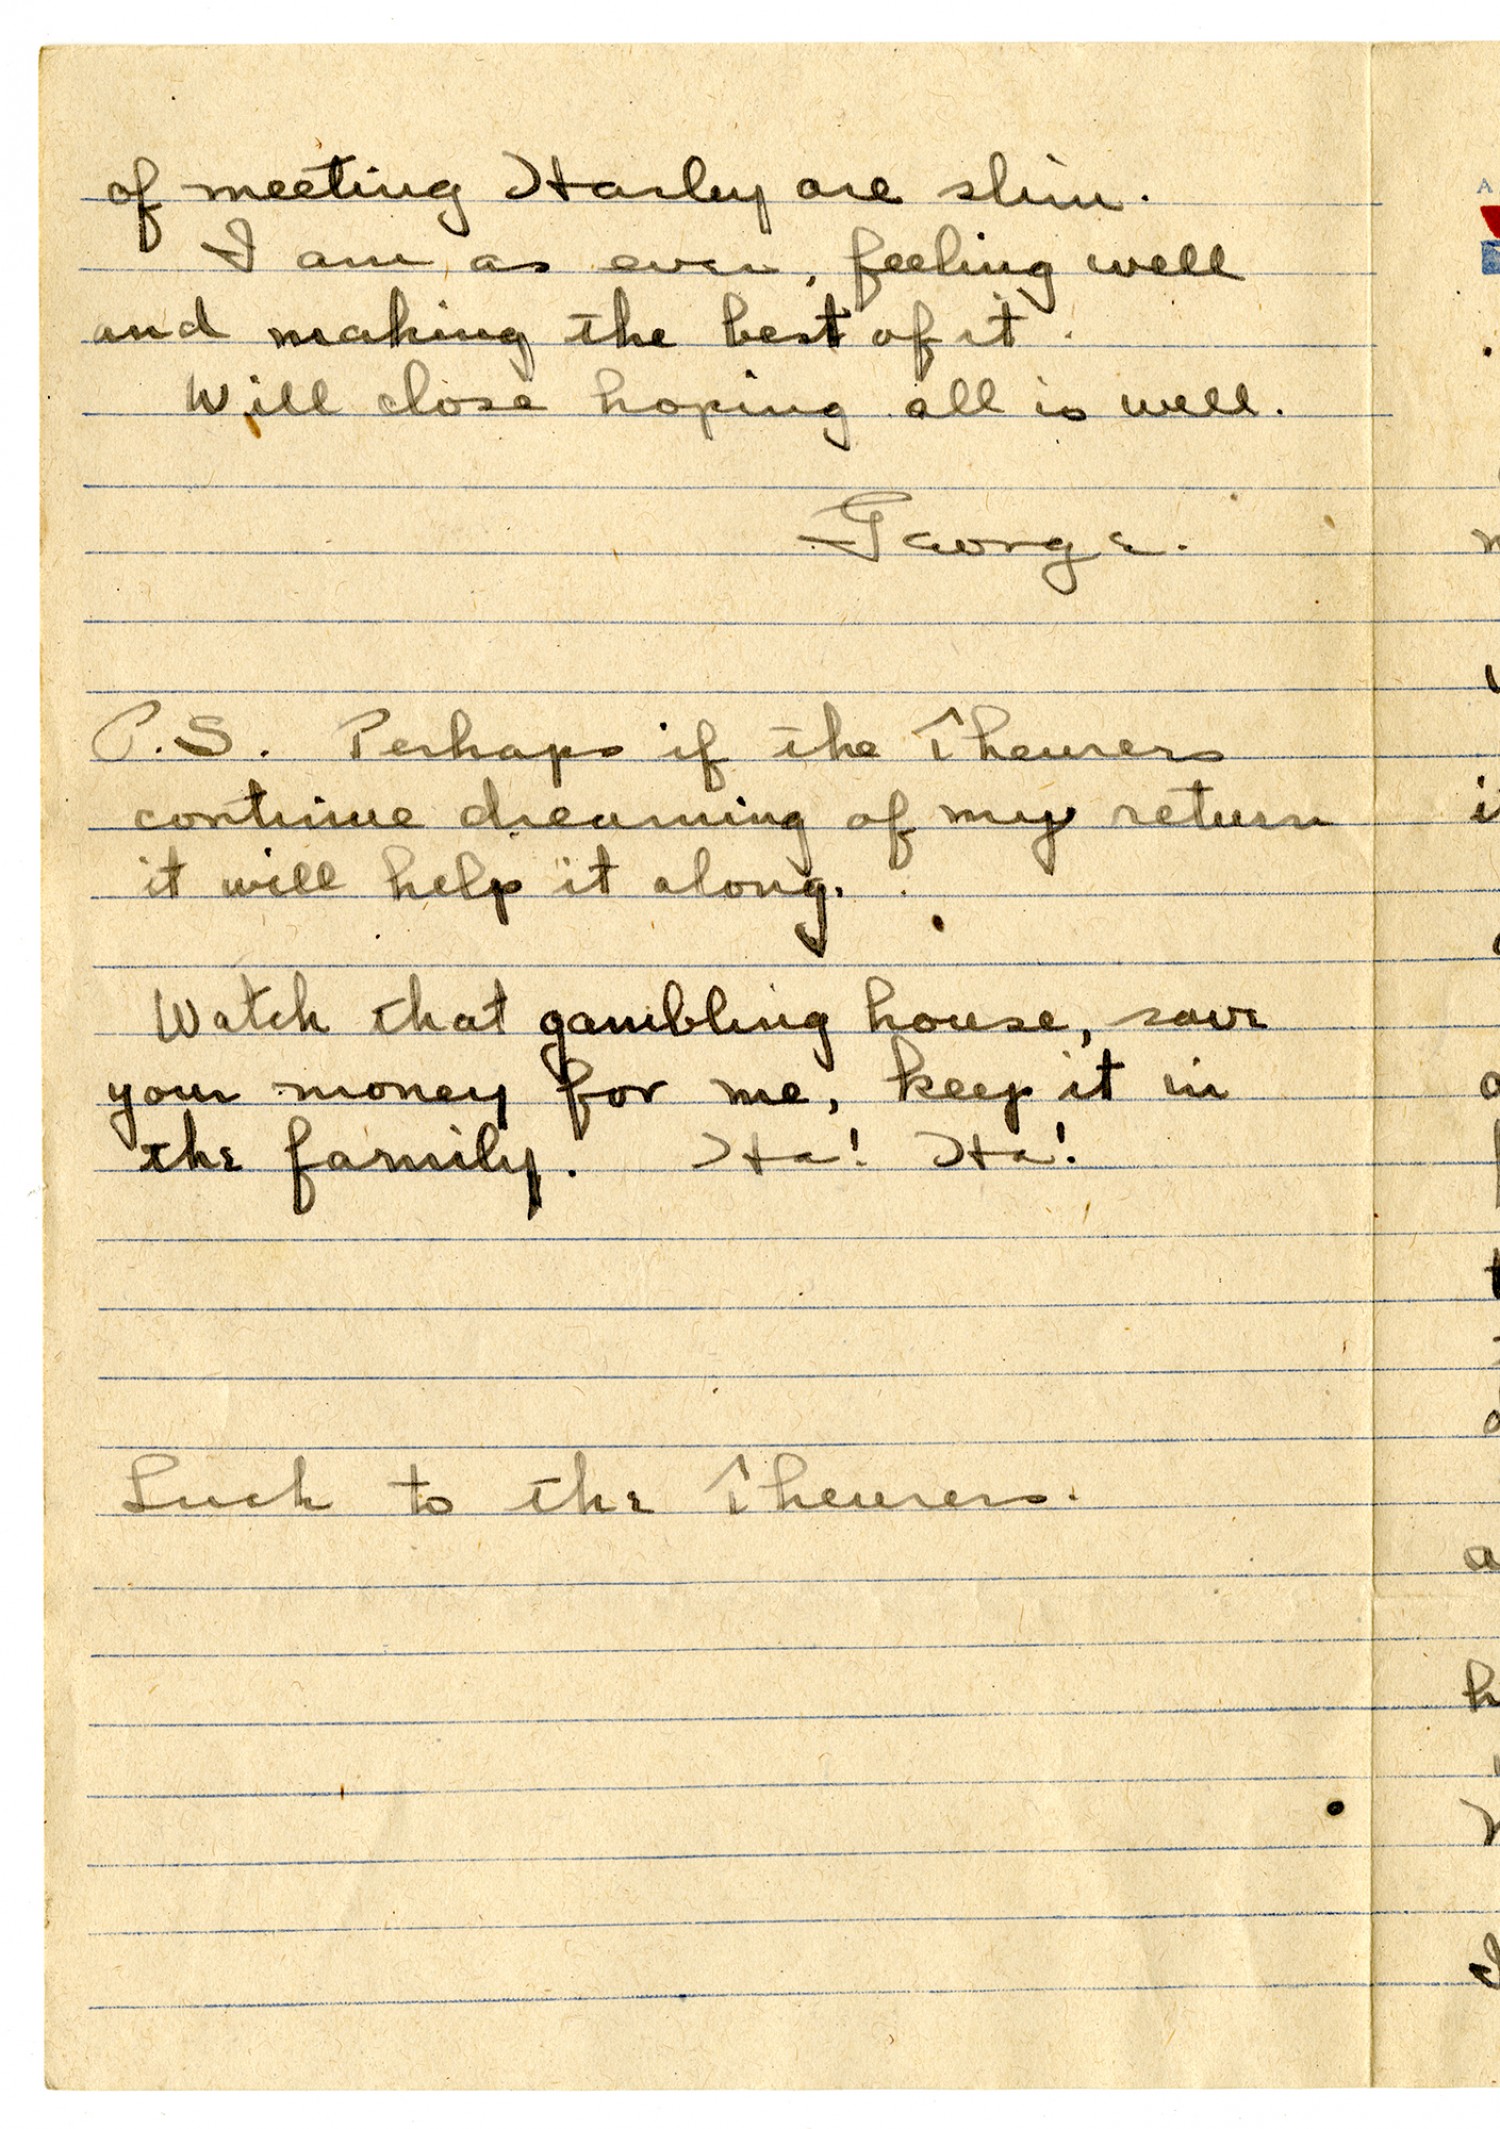 of meeting Harley are slim.
I am as ever, feeling well
and making the best of it.
Will close hoping all is well.
George.
P.S. Perhaps if the Theurers
continue dreaming of my return
it will help it along.
Watch that gambling house, save
your money for me, keep it in
the family. Ha! Ha!
Luck to the Theurers.